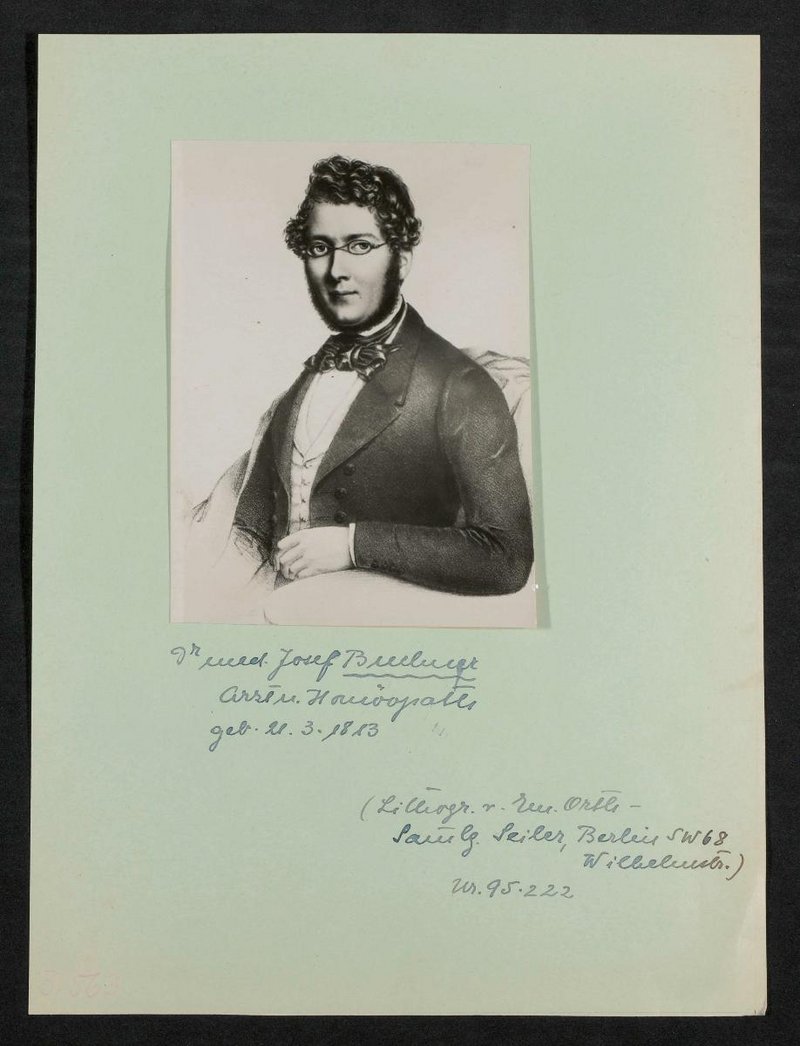 Dr med. Josef Buchner
Arzt u. Homöopath
geb. 21. 3. 1813
(Lithogr. v. Em. Orth –
Samlg. Seiler, Berlin SW68
Wilhelmstr.)
Nr. 95.222